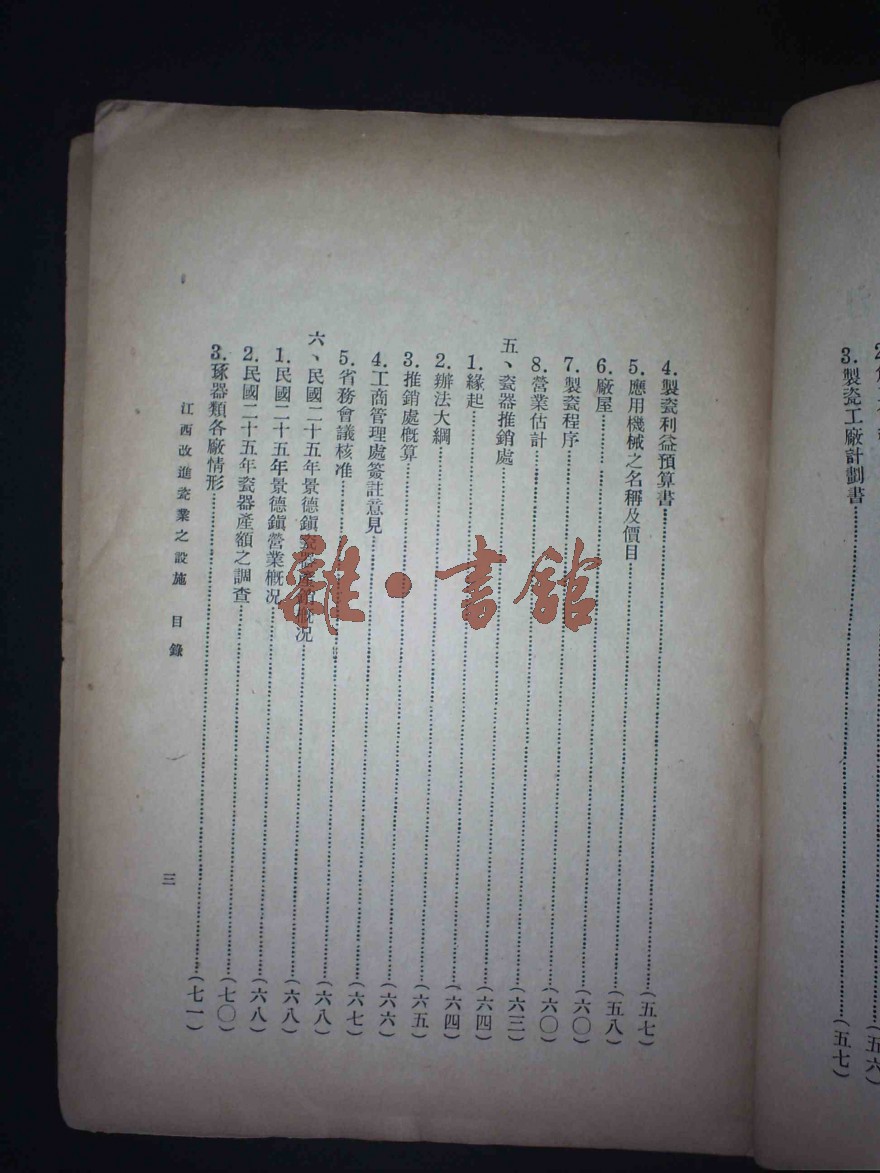 3.製瓷工廠計劃書……(五七)
4.製瓷利益預算書……(五七)
5.應用機械之名稱及價目……(五八)
6.廠屋……(六〇)
7.製瓷程序……(六〇)
8.營業估計……(六三)
五、瓷器推銷處……(六四)
1.緣起……(六四)
2.辦法大綱……(六五)
3.推銷處概算……(六六)
4.工商管理處簽註意見……(六七)
5.省務會議核准……(六八)
六、民國二十五年景德鎮瓷器產銷概况……(六八)
1.民國二十五年景德鎮營業概况……(六八)
2.民國二十五年瓷器產額之調查……(七〇)
3.琢器類各廠情形……(七一)
江西改進瓷業之設施 目錄 三
雜·書館